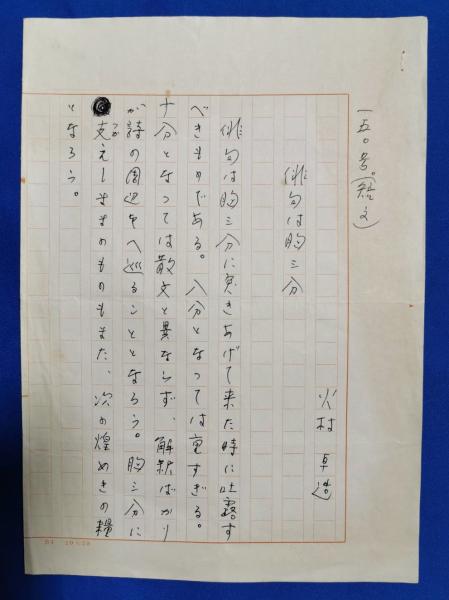 一五〇号。(短文)
俳句は胸三分
火村 卓造
俳句は胸三分に突きあげて来た時に吐露す
べきものである。八分となっては重すぎる。
十分となっては散文と異ならず、解釈ばかり
が詩の周辺を巡ることとなろう。胸三分に
支えしままのものもまた、次の煌めきの糧
となろう。